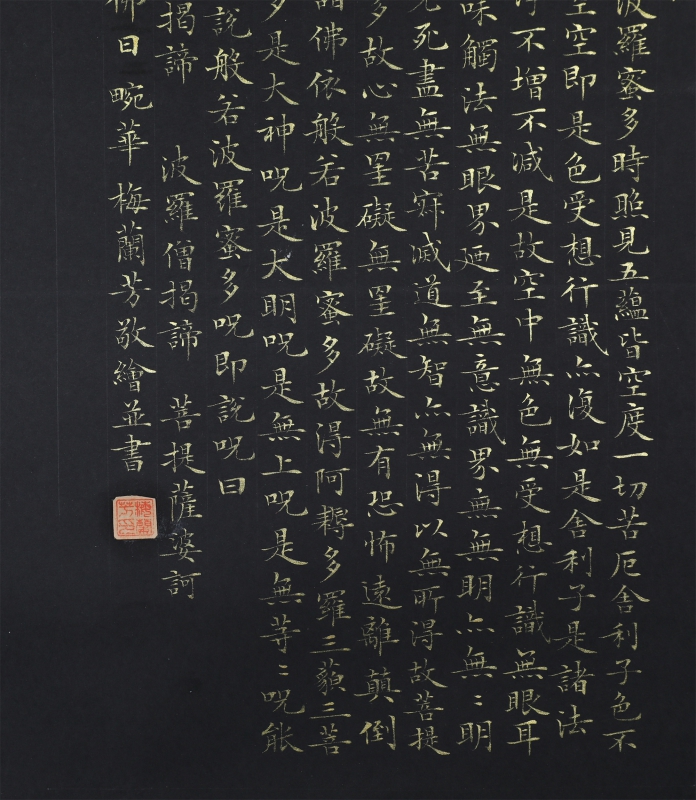 波羅蜜多時照見五蘊皆空度一切苦厄舍利子色不
空空即是色受想行識亦復如是舍利子是諸法
不增不減是故空中無色無受想行識無眼耳
味觸法無眼界廼至無意識界無無明亦無〻明
死盡無苦寂滅道無智亦無得以無所得故菩提
多故心無罣礙無罣礙故無有恐怖遠離顛倒
諸佛依般若波羅蜜多故得阿耨多羅三藐三菩
多是大神呪是大明呪是無上呪是無等〻呪能
說般若波羅蜜多呪即說呪曰
揭諦 波羅僧揭諦 菩提薩婆訶
佛日畹華梅蘭芳敬繪並書